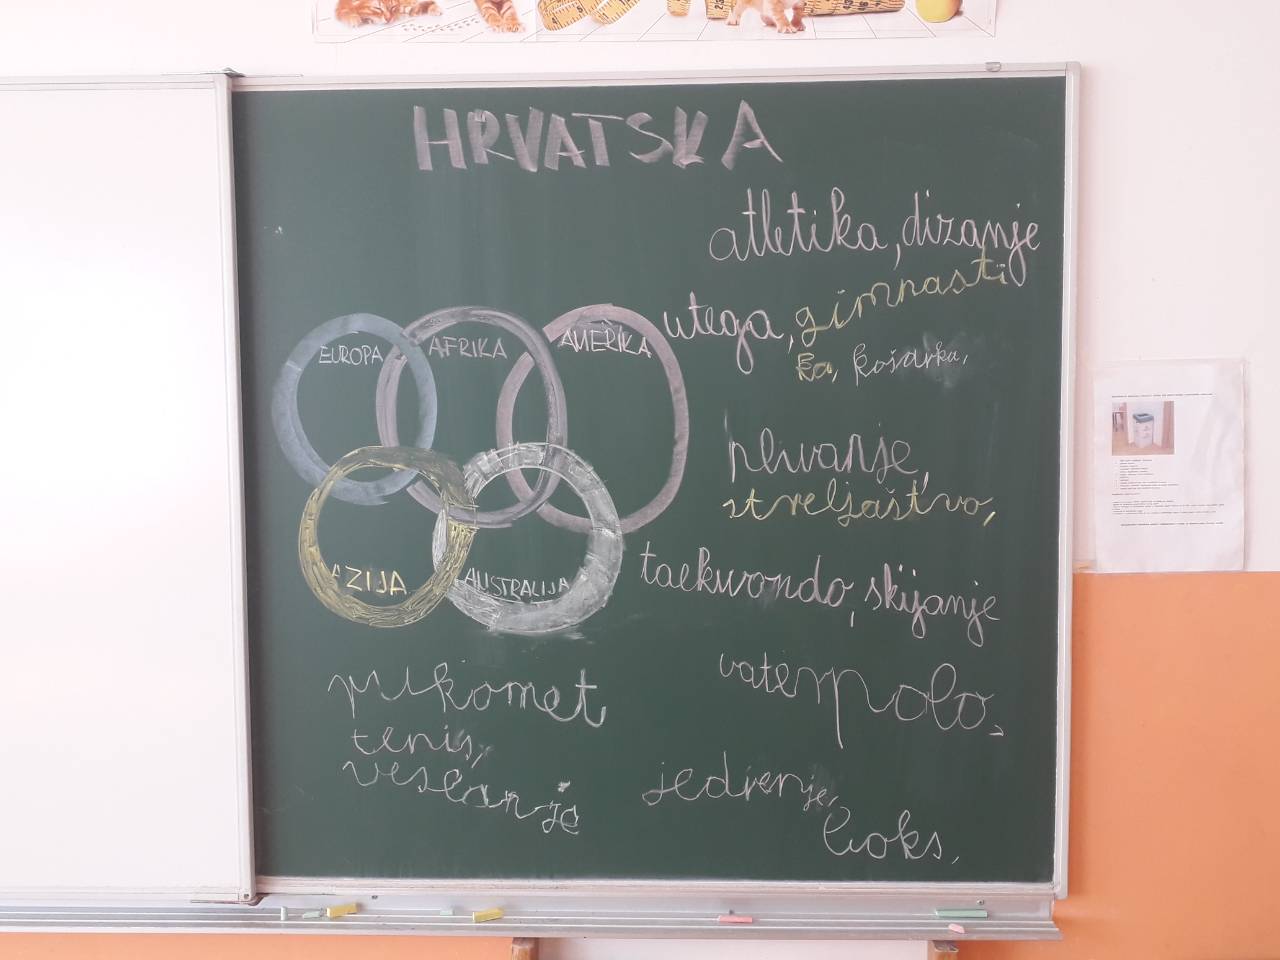 HRVATSKA
atletika, dizanje
utega, gimnasti
ka, košarka,
EUROPA AFRIKA AMERIKA
plivanje,
streljaštvo,
AZIJA AUSTRALIJA
taekwondo, skijanje
vaterpolo,
rukomet
tenis,
veslanje
jedrenje,
boks,